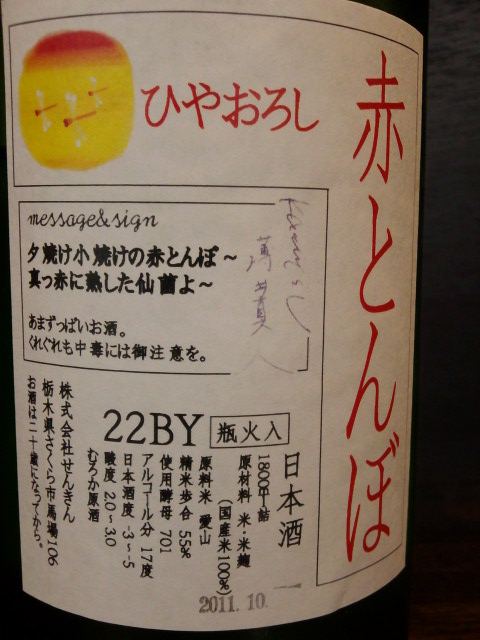 赤とんぼ
ひやおろし
message&sign
夕焼け小焼けの赤とんぼ~
真っ赤に熟した仙菌よ~
あまずっぱいお酒。
くれぐれも中毒には御注意を。
22BY
瓶火入
日本酒
1800ml詰
原材料 米・米麹
(国産米100%)
原料米 愛山
精米歩合 55%
使用酵母 701
アルコール分 17度
日本酒度 -3~-5
酸度 2.0~3.0
むろか原酒
株式会社せんきん
栃木県さくら市馬場106
お酒は二十歳になってから。
2011.10.